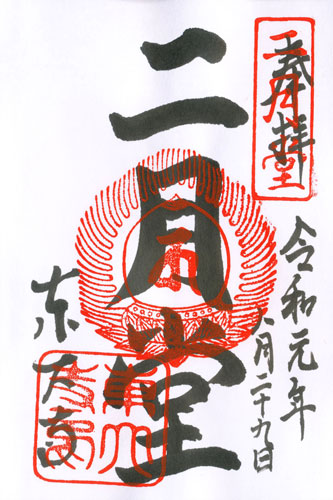 奉拝
二月堂
二月堂
令和元年
八月二十九日
東大寺